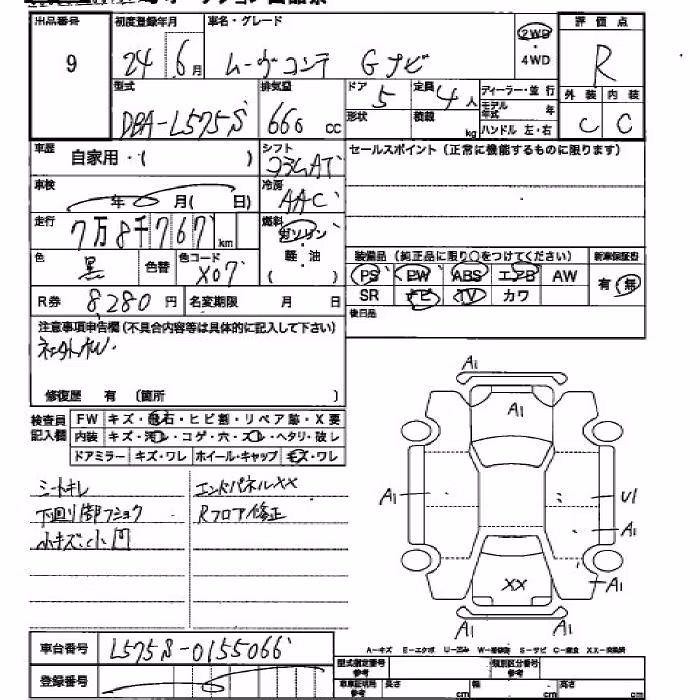 出品番号 初度登録年月 車名・グレード 評価点
9 24 6月 ムーヴコンテ Gナビ 2WD・4WD R
型式 排気量 ドア 定員 ディーラー・並行 外装 内装
DBA-L575S 660 cc 5 4人 モデル年式 年 C C
形状 積載 kg ハンドル 左・右
車歴 自家用・( ) シフト コラムAT セールスポイント(正常に機能するものに限ります)
車検 年 月( 日) 冷房 AAC
走行 7万8千767km 燃料 ガソリン
軽・油
( )
色 黒 色替 色コード X07 装備品(純正品に限り○をつけてください) 新車保証書
PS PW ABS エアB AW 有・無
R券 8,280円 名変期限 月 日 SR ナビ TV カワ
後日品
注意事項申告欄(不具合内容等は具体的に記入して下さい)
社外AW.
修復歴 有 (箇所 )
検査員記入欄 FW キズ・飛石・ヒビ割・リペア跡・X要
内装 キズ・汚レ・コゲ・穴・スレ・ヘタリ・破レ
ドアミラー キズ・ワレ ホイール・キャップ キズ・ワレ
シートキレ エンドパネルXX
下回リ部フショク Rフロア修正
小キズ・小凹
A1
A1
A1 U1
A1
XX A1
A1 A1
A-キズ E-エクボ U-凹み W-補修跡 S-サビ C-腐食 XX-交換済
車台番号 L575S-0155066
登録番号
型式指定番号 参考 類別区分番号 参考
車車証明用 参考 長さ cm 幅 cm 高さ cm